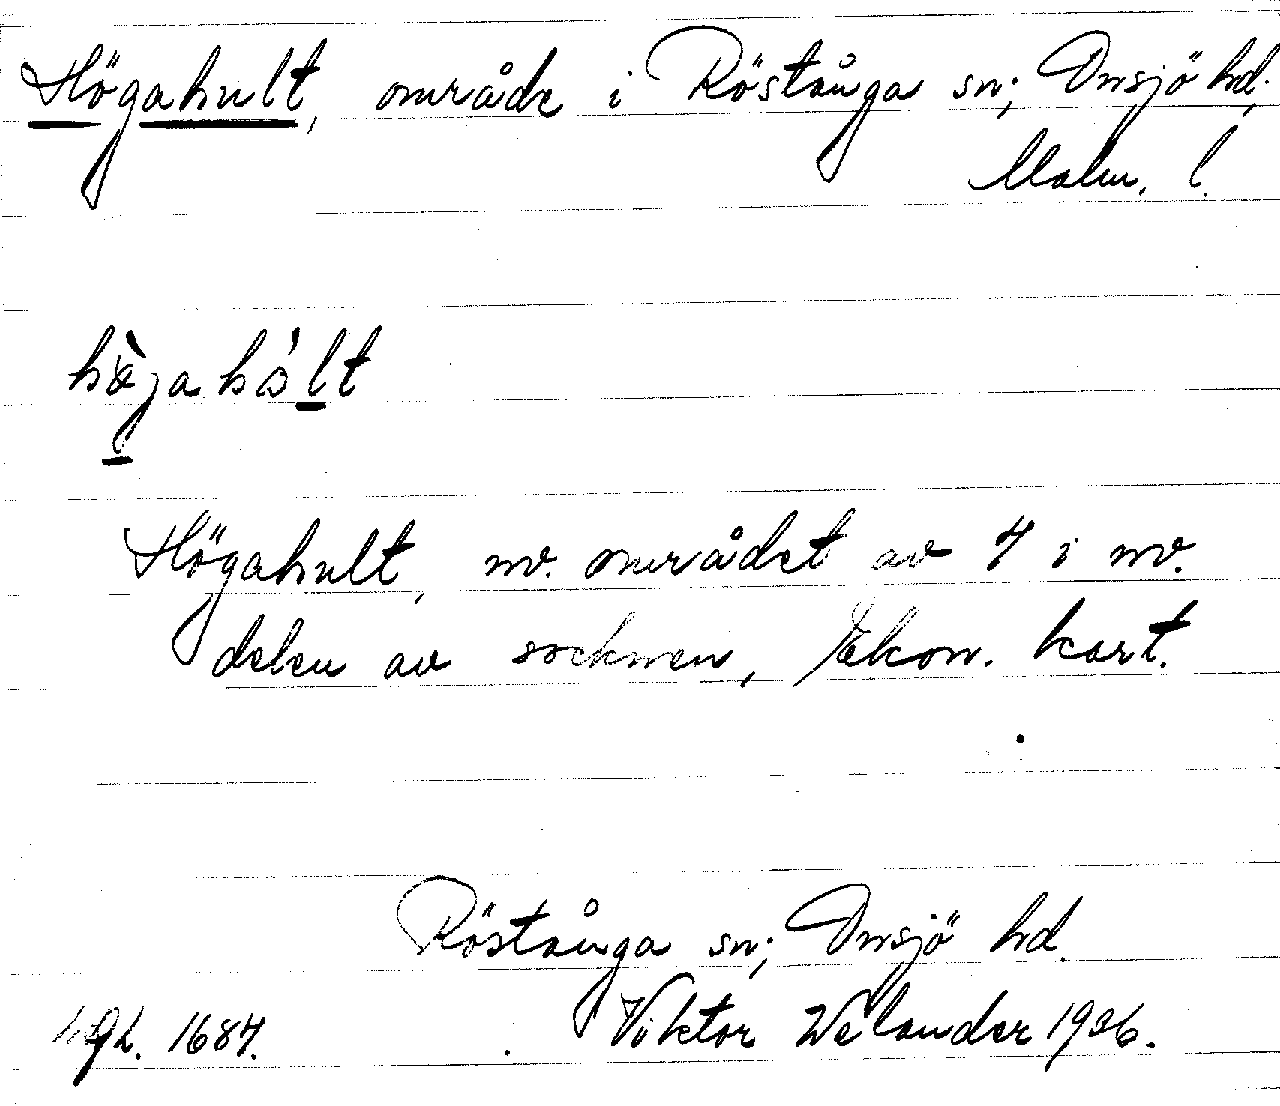 Högahult, område i Röstånga sn; Onsjö hd.
Malm. l.
Högahult, nv. området av 4 i nv.
delen av socknen, Ekon. kart.
Röstånga sn; Onsjö hd.
1684. Viktor Welander 1936.